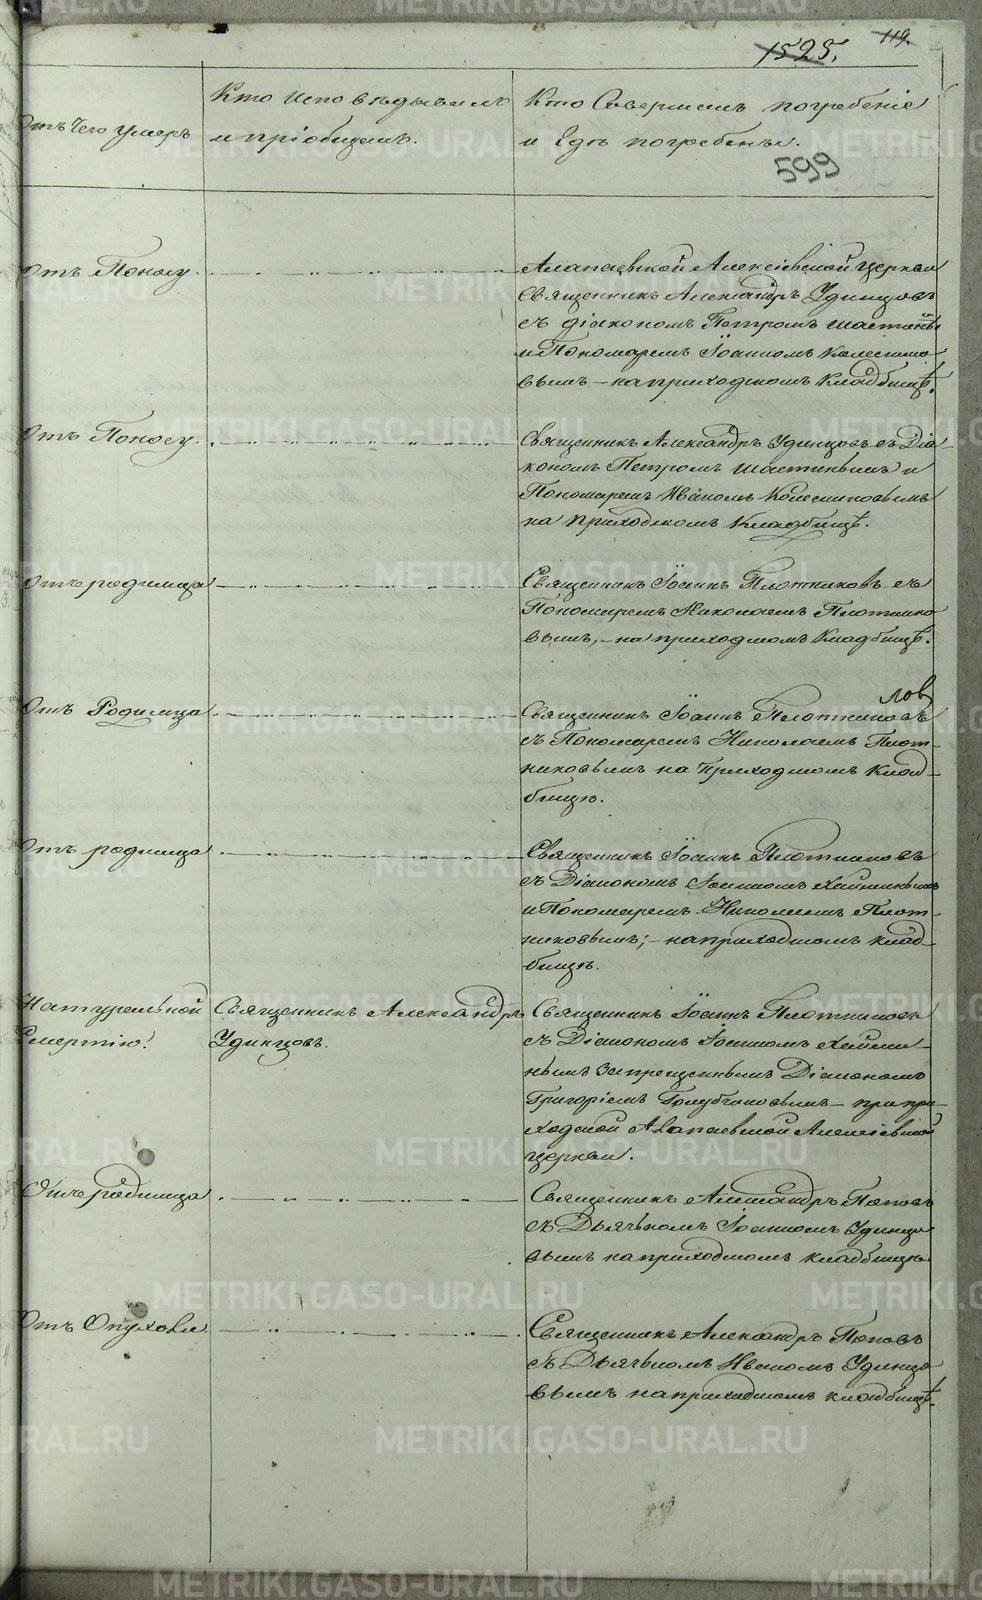 1525.
119.
Отъ чего умеръ
Кто исповѣдывалъ
и пріобщалъ.
Кто Совершалъ погребеніе
и Гдѣ погребены.
599
Отъ Поносу.
Алапаевской Алексіевской церкви
Священникъ Александръ Удинцовъ
съ діакономъ Петромъ
и Пономаремъ Іоанномъ Колеснико-
вымъ – на приходскомъ Кладбищѣ.
Отъ Поносу
Священникъ Александръ Удинцовъ съ Діа-
кономъ Петромъ и
Пономаремъ Иваномъ Колесниковымъ
на приходскомъ Кладбищѣ.
Отъ родимца
Священникъ Іоаннъ Плотниковъ съ
Пономаремъ Николаемъ Плотнико-
вымъ, – на приходскомъ Кладбищѣ.
лов
Отъ Родимца
Священникъ Іоаннъ Плотниковъ
съ Пономаремъ Николаемъ Плот-
никовымъ на приходскомъ Клад-
бищѣ.
Отъ родимца
Священникъ Іоаннъ Плотниковъ
съ Діакономъ Іоанномъ
и Пономаремъ Николаемъ Плот-
никовымъ; – на приходскомъ клад-
бищѣ.
Натуральной
Смертію.
Священникъ Александръ
Удинцовъ.
Священникъ Іоаннъ Плотниковъ
съ Діакономъ Іоанномъ
запрещеннымъ Діакономъ
Григоріемъ Голубчиковымъ – при при-
ходской Алапаевской Алексіевской
церкви.
Отъ родимца
Священникъ Александръ Поповъ
съ Дьячкомъ Іоанномъ Удинцо-
вымъ на приходскомъ кладбищѣ
Отъ Опухоли
Священникъ Александръ Поповъ
съ Дьячкомъ Иваномъ Удинцо-
вымъ на приходскомъ кладбищѣ.
METRIKI.GASO-URAL.RU